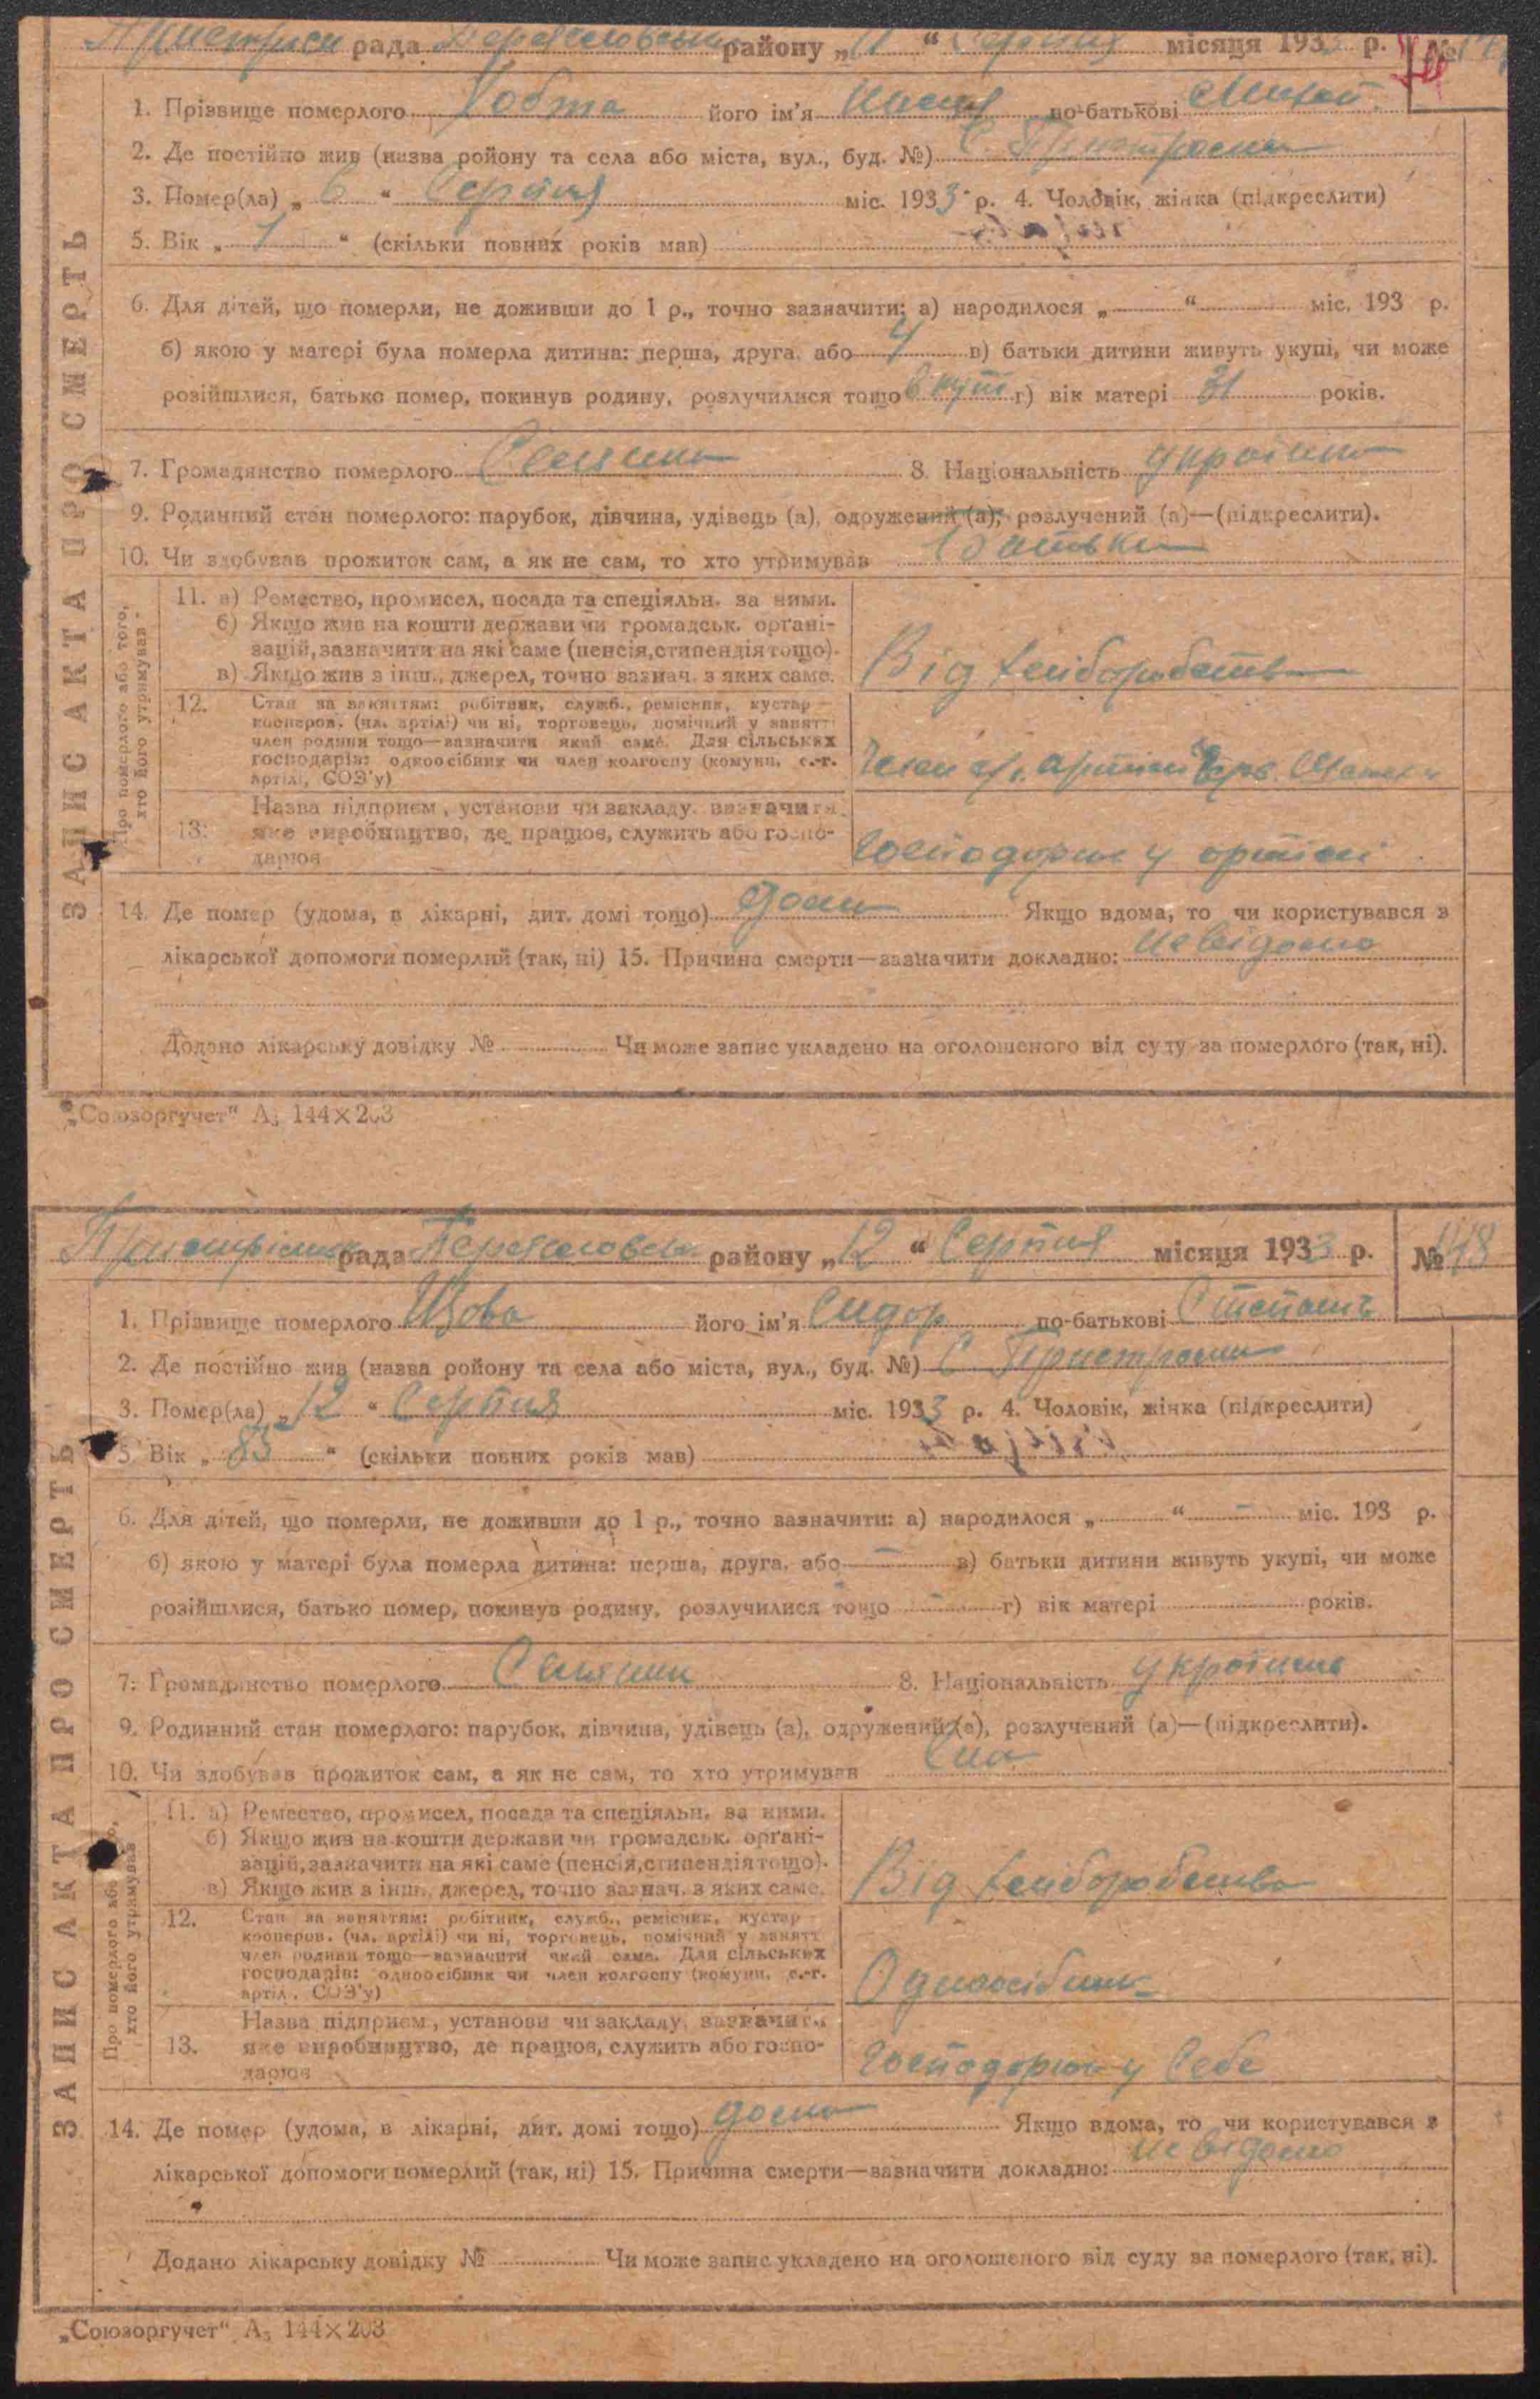 рада району „11“ Серпня місяця 1933 р. №
1. Прізвище померлого його ім'я по-батькові
2. Де постійно жив (назва ройону та села або міста, вул., буд. №) С. Пристроми
3. Помер(ла) „6“ Серпня міс. 1933 р. 4. Чоловік, жінка (підкреслити)
5. Вік „1“ (скільки повних років мав)
6. Для дітей, що померли, не доживши до 1 р., точно зазначити: а) народилося „ “ міс. 193 р.
б) якою у матері була померла дитина: перша, друга, або 4 в) батьки дитини живуть укупі, чи може
розійшлися, батько помер, покинув родину, розлучилися тощо г) вік матері 31 років.
7. Громадянство померлого 8. Національність
9. Родинний стан померлого: парубок, дівчина, удівець (а), одружений (а), розлучений (а)—(підкреслити).
10. Чи здобував прожиток сам, а як не сам, то хто утримував Батьки
ЗАПИС АКТА ПРО СМЕРТЬ
Про померлого або того, хто його утримував
11. а) Ремество, промисел, посада та спеціяльн. за ними.
б) Якщо жив на кошти держави чи громадськ. орґані-
зацій, зазначити на які саме (пенсія, стипендія тощо).
в) Якщо жив з інш., джерел, точно зазнач. з яких саме.
Від хліборобства
12. Стан за заняттям: робітник, служб., ремісник, кустар
кооперов. (чл. артілі) чи ні, торговець, помічний у занятт
член родини тощо—зазначити який саме. Для сільських
господарів: одноосібник чи член колгоспу (комуни, с.-г.
артілі, СОЗ'у)
Член с/г. артілі Черв.
13. Назва підприєм., установи чи закладу, зазначити
яке виробництво, де працює, служить або госпо-
дарює
у артілі
14. Де помер (удома, в лікарні, дит. домі тощо) дома Якщо вдома, то чи користувався з
лікарської допомоги померлий (так, ні) 15. Причина смерти—зазначити докладно: невідомо
Додано лікарську довідку № Чи може запис укладено на оголошеного від суду за померлого (так, ні).
„Союзоргучет“ А5 144×203
рада району „12“ Серпня місяця 1933 р. № 148
1. Прізвище померлого його ім'я Сидор по-батькові
2. Де постійно жив (назва ройону та села або міста, вул., буд. №) С Пристроми
3. Помер(ла) „12“ Серпня міс. 1933 р. 4. Чоловік, жінка (підкреслити)
5. Вік „83“ (скільки повних років мав)
6. Для дітей, що померли, не доживши до 1 р., точно зазначити: а) народилося „ “ — міс. 193 р.
б) якою у матері була померла дитина: перша, друга, або — в) батьки дитини живуть укупі, чи може
розійшлися, батько помер, покинув родину, розлучилися тощо — г) вік матері років.
7. Громадянство померлого 8. Національність українець
9. Родинний стан померлого: парубок, дівчина, удівець (а), одружений (а), розлучений (а)—(підкреслити).
10. Чи здобував прожиток сам, а як не сам, то хто утримував
ЗАПИС АКТА ПРО СМЕРТЬ
Про померлого або того, хто його утримував
11. а) Ремество, промисел, посада та спеціяльн. за ними.
б) Якщо жив на кошти держави чи громадськ. орґані-
зацій, зазначити на які саме (пенсія, стипендія тощо).
в) Якщо жив з інш., джерел, точно зазнач. з яких саме.
Від хліборобства
12. Стан за заняттям: робітник, служб., ремісник, кустар
кооперов. (чл. артілі) чи ні, торговець, помічний у занятт
член родини тощо—зазначити який саме. Для сільських
господарів: одноосібник чи член колгоспу (комуни, с.-г.
артіл., СОЗ'у)
Одноосібник
13. Назва підприєм., установи чи закладу, зазначити
яке виробництво, де працює, служить або госпо-
дарює
у себе
14. Де помер (удома, в лікарні, дит. домі тощо) дома Якщо вдома, то чи користувався з
лікарської допомоги померлий (так, ні) 15. Причина смерти—зазначити докладно: невідомо
Додано лікарську довідку № Чи може запис укладено на оголошеного від суду за померлого (так, ні).
„Союзоргучет“ А5 144×203